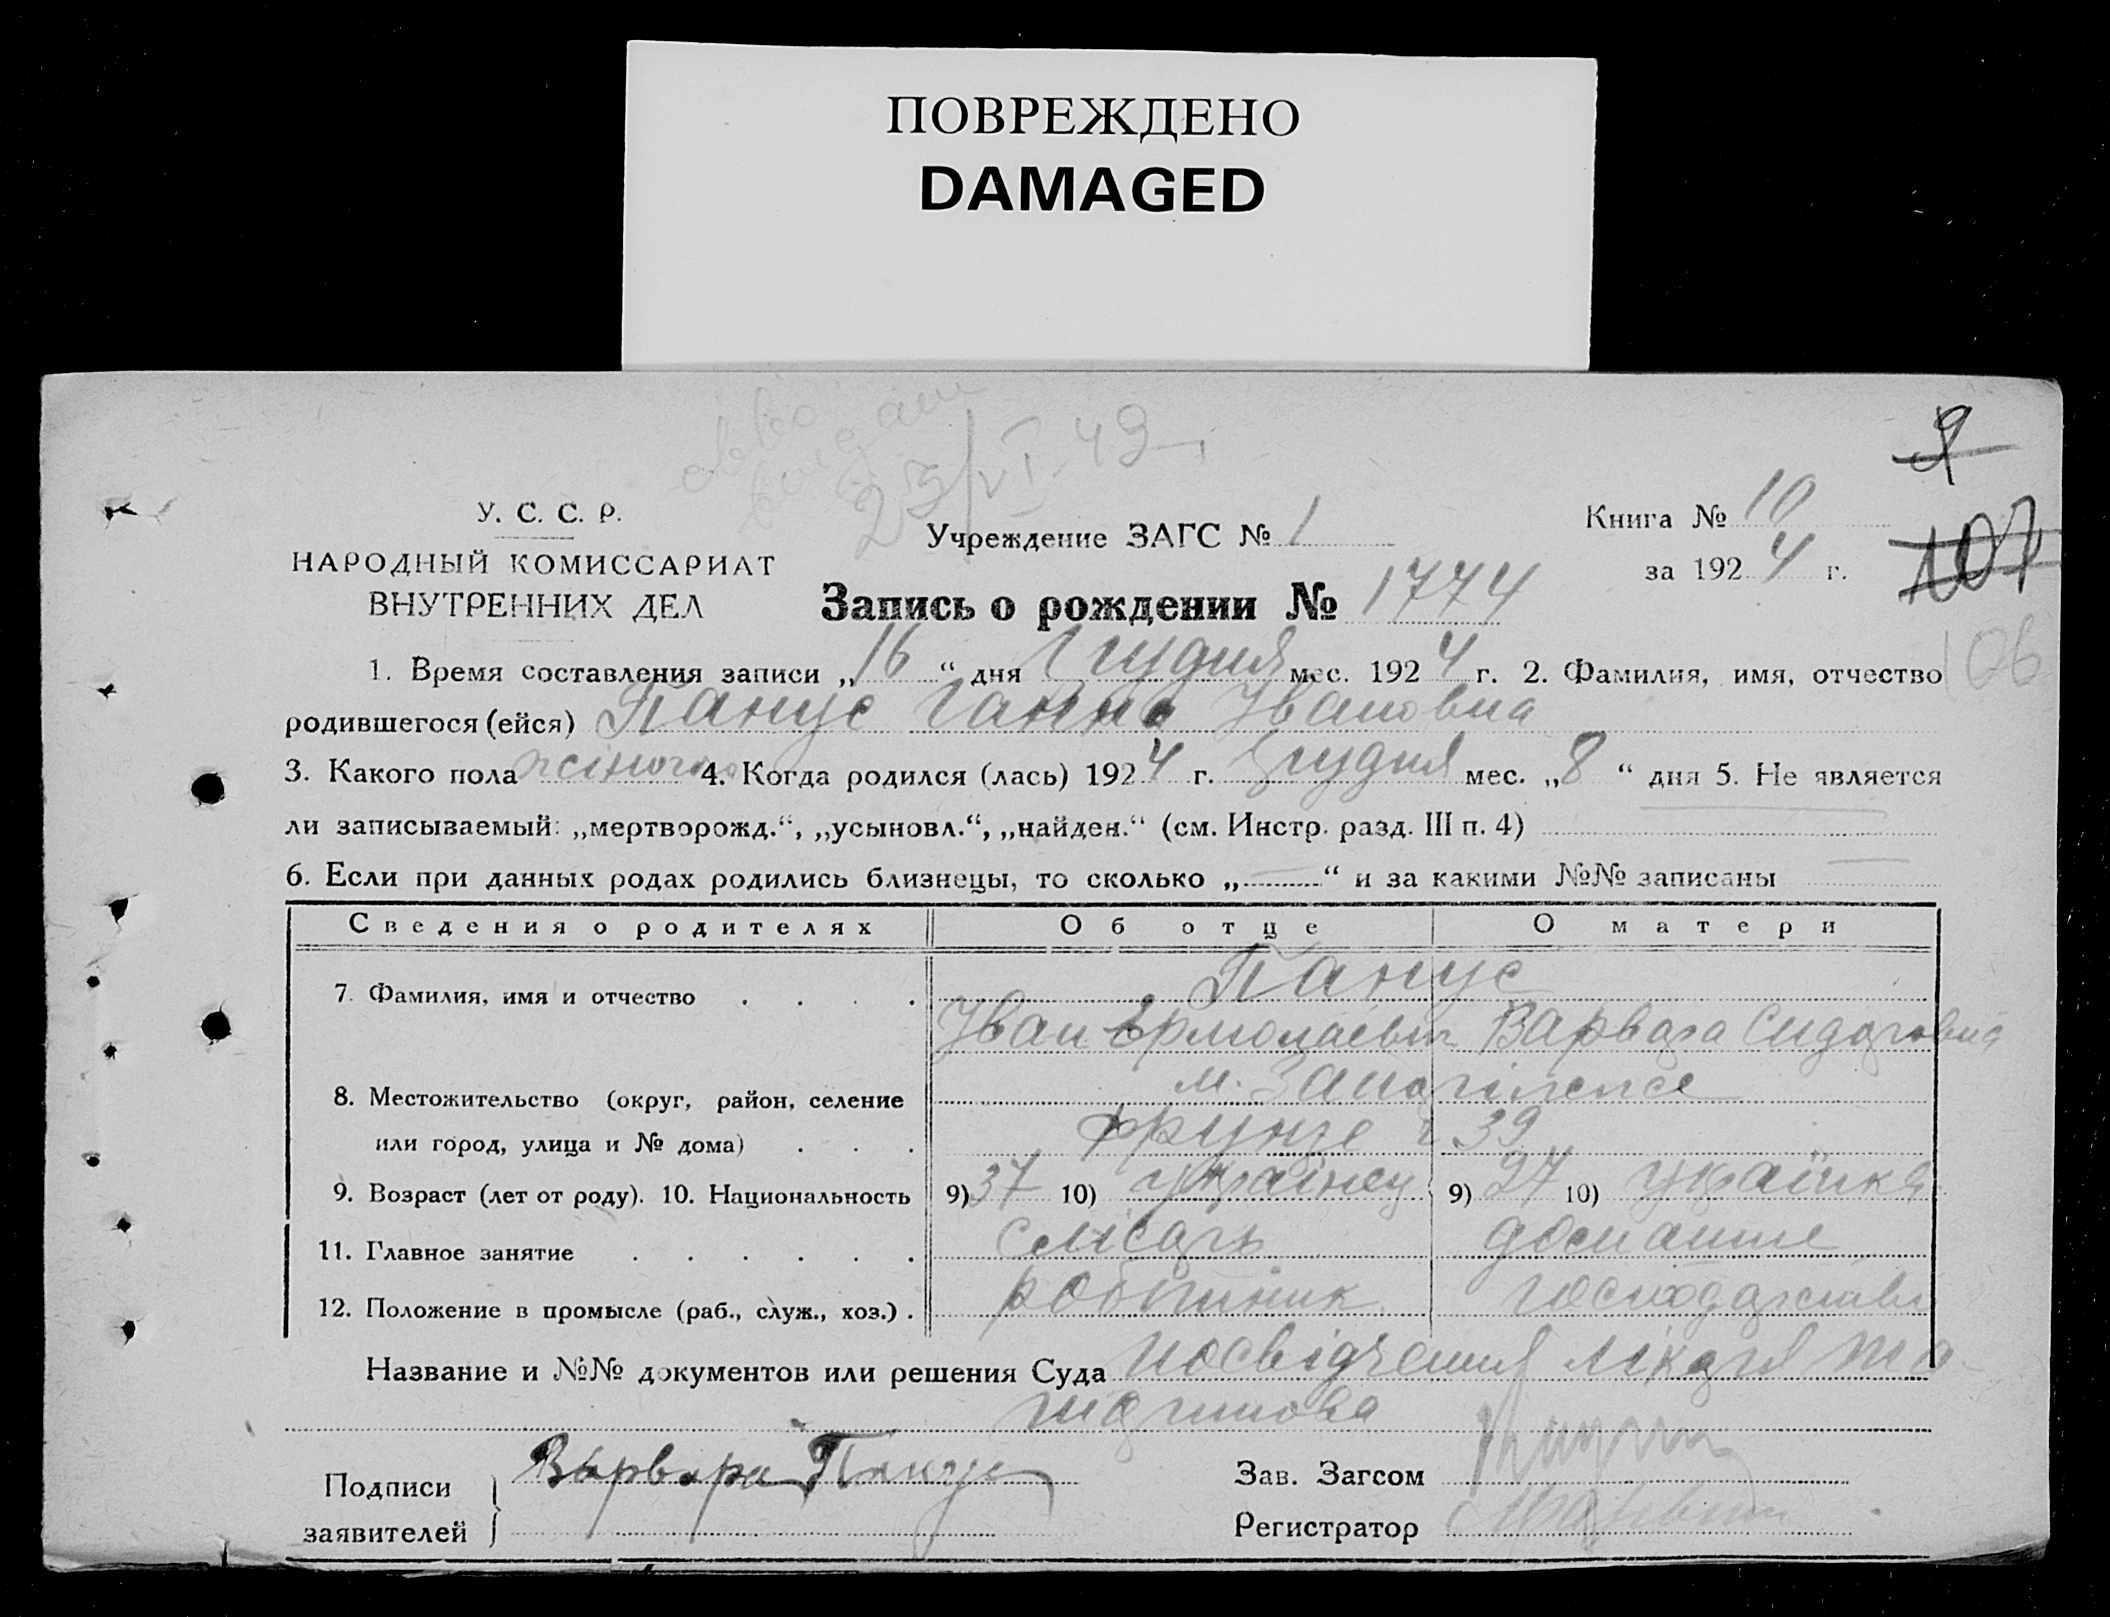 ПОВРЕЖДЕНО
DAMAGED
9
23/VI-49
У. С. С. Р.
Учреждение ЗАГС № 1
Книга № 10
107
НАРОДНЫЙ КОМИССАРИАТ
ВНУТРЕННИХ ДЕЛ
за 1924 г.
Запись о рождении № 1774
106
1. Время составления записи „16“ дня Грудня мес. 1924 г. 2. Фамилия, имя, отчество
родившегося (ейся) Панус Ганна Івановна
3. Какого пола жіночого 4. Когда родился (лась) 1924 г. Грудня мес. „8“ дня 5. Не является
ли записываемый: „мертворожд.“, „усыновл.“, „найден.“ (см. Инстр. разд. III п. 4)
6. Если при данных родах родились близнецы, то сколько „—“ и за какими №№ записаны —
Сведения о родителях Об отце О матери
7. Фамилия, имя и отчество Панус
Іван Ермолаевич Варвара Сидоровна
8. Местожительство (округ, район, селение м. Запоріжже
или город, улица и № дома) Фрунзе 39
9. Возраст (лет от роду). 10. Национальность 9) 37 10) українец 9) 27 10) українка
11. Главное занятие слісарь домашне
12. Положение в промысле (раб., служ., хоз.) робітник господарство
Название и №№ документов или решения Суда посвідчення лікаря
Подписи Варвара Панус
заявителей
Зав. Загсом
Регистратор